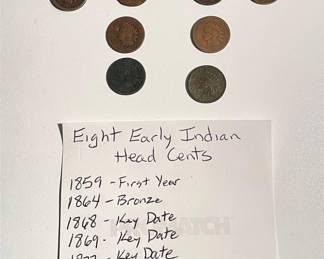 Eight Early Indian
Head Cents
1859 - First Year
1864 - Bronze
1868 - Key Date
1869 - Key Date
- Key Date